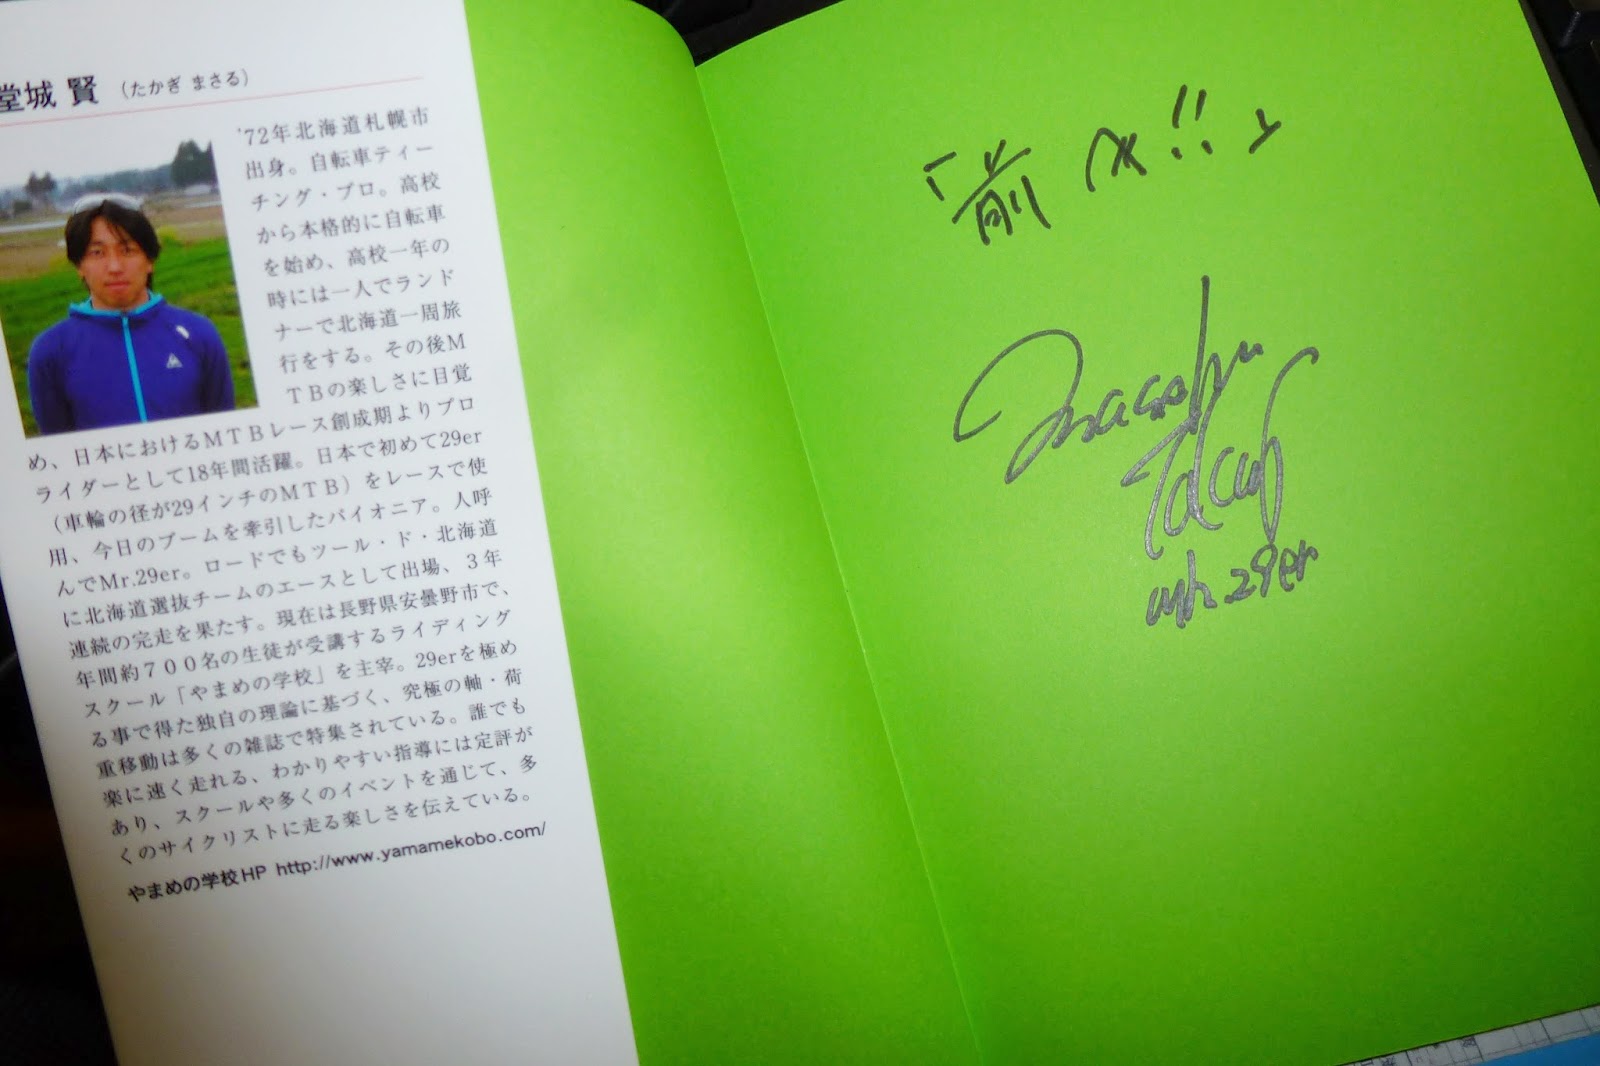 堂城 賢 (たかぎ まさる)
'72年北海道札幌市
出身。自転車ティー
チング・プロ。高校
から本格的に自転車
を始め、高校一年の
時には一人でランド
ナーで北海道一周旅
行をする。その後M
TBの楽しさに目覚
め、日本におけるMTBレース創成期よりプロ
ライダーとして18年間活躍。日本で初めて29er
(車輪の径が29インチのMTB)をレースで使
用、今日のブームを牽引したパイオニア。人呼
んでMr.29er。ロードでもツール・ド・北海道
に北海道選抜チームのエースとして出場、3年
連続の完走を果たす。現在は長野県安曇野市で、
年間約700名の生徒が受講するライディング
スクール「やまめの学校」を主宰。29erを極め
る事で得た独自の理論に基づく、究極の軸・荷
重移動は多くの雑誌で特集されている。誰でも
楽に速く走れる、わかりやすい指導には定評が
あり、スクールや多くのイベントを通じて、多
くのサイクリストに走る楽しさを伝えている。
やまめの学校HP http://www.yamamekobo.com/
「前へ!!」
Masaru
Takagi
Mr.29er